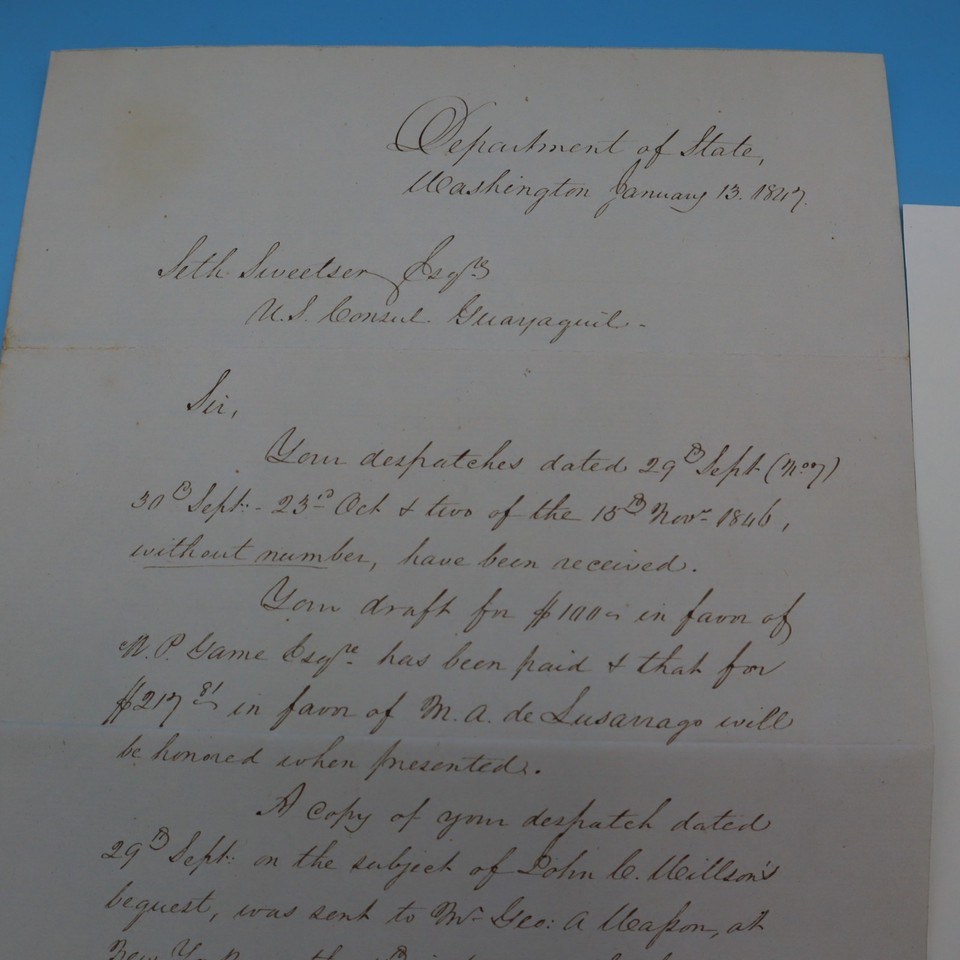 Department of State,
Washington January 13. 1847.
Seth Sweetser Esqre
U.S. Consul Guayaquil -
Sir,
Your despatches dated 29th Sept (No 7)
30th Sept. - 23rd Oct & two of the 15th Novr 1846,
without number, have been received.
Your draft for $100 in favor of
M. P. Game Esqre. has been paid & that for
$217 81 in favor of M. A. de Lusarrago will
be honored when presented.
A copy of your despatch dated
29th Sept: on the subject of John C. Willson's
bequest, was sent to Mr Geo: A Wasson, at
New York